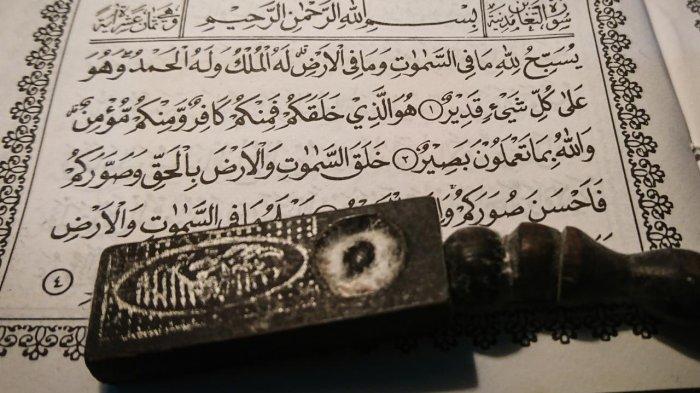 بِسْمِ اللّٰهِ الرَّحْمٰنِ الرَّحِيْمِ
يُسَبِّحُ لِلّٰهِ مَا فِى السَّمٰوٰتِ وَمَا فِى الْاَرْضِۚ لَهُ الْمُلْكُ وَلَهُ الْحَمْدُ وَهُوَ
عَلٰى كُلِّ شَيْءٍ قَدِيْرٌ ١ هُوَ الَّذِيْ خَلَقَكُمْ فَمِنْكُمْ كَافِرٌ وَّمِنْكُمْ مُّؤْمِنٌ
وَاللّٰهُ بِمَا تَعْمَلُوْنَ بَصِيْرٌ ٢ خَلَقَ السَّمٰوٰتِ وَالْاَرْضَ بِالْحَقِّ وَصَوَّرَكُمْ
فَاَحْسَنَ صُوَرَكُمْ فِى السَّمٰوٰتِ وَالْاَرْضِ
٤